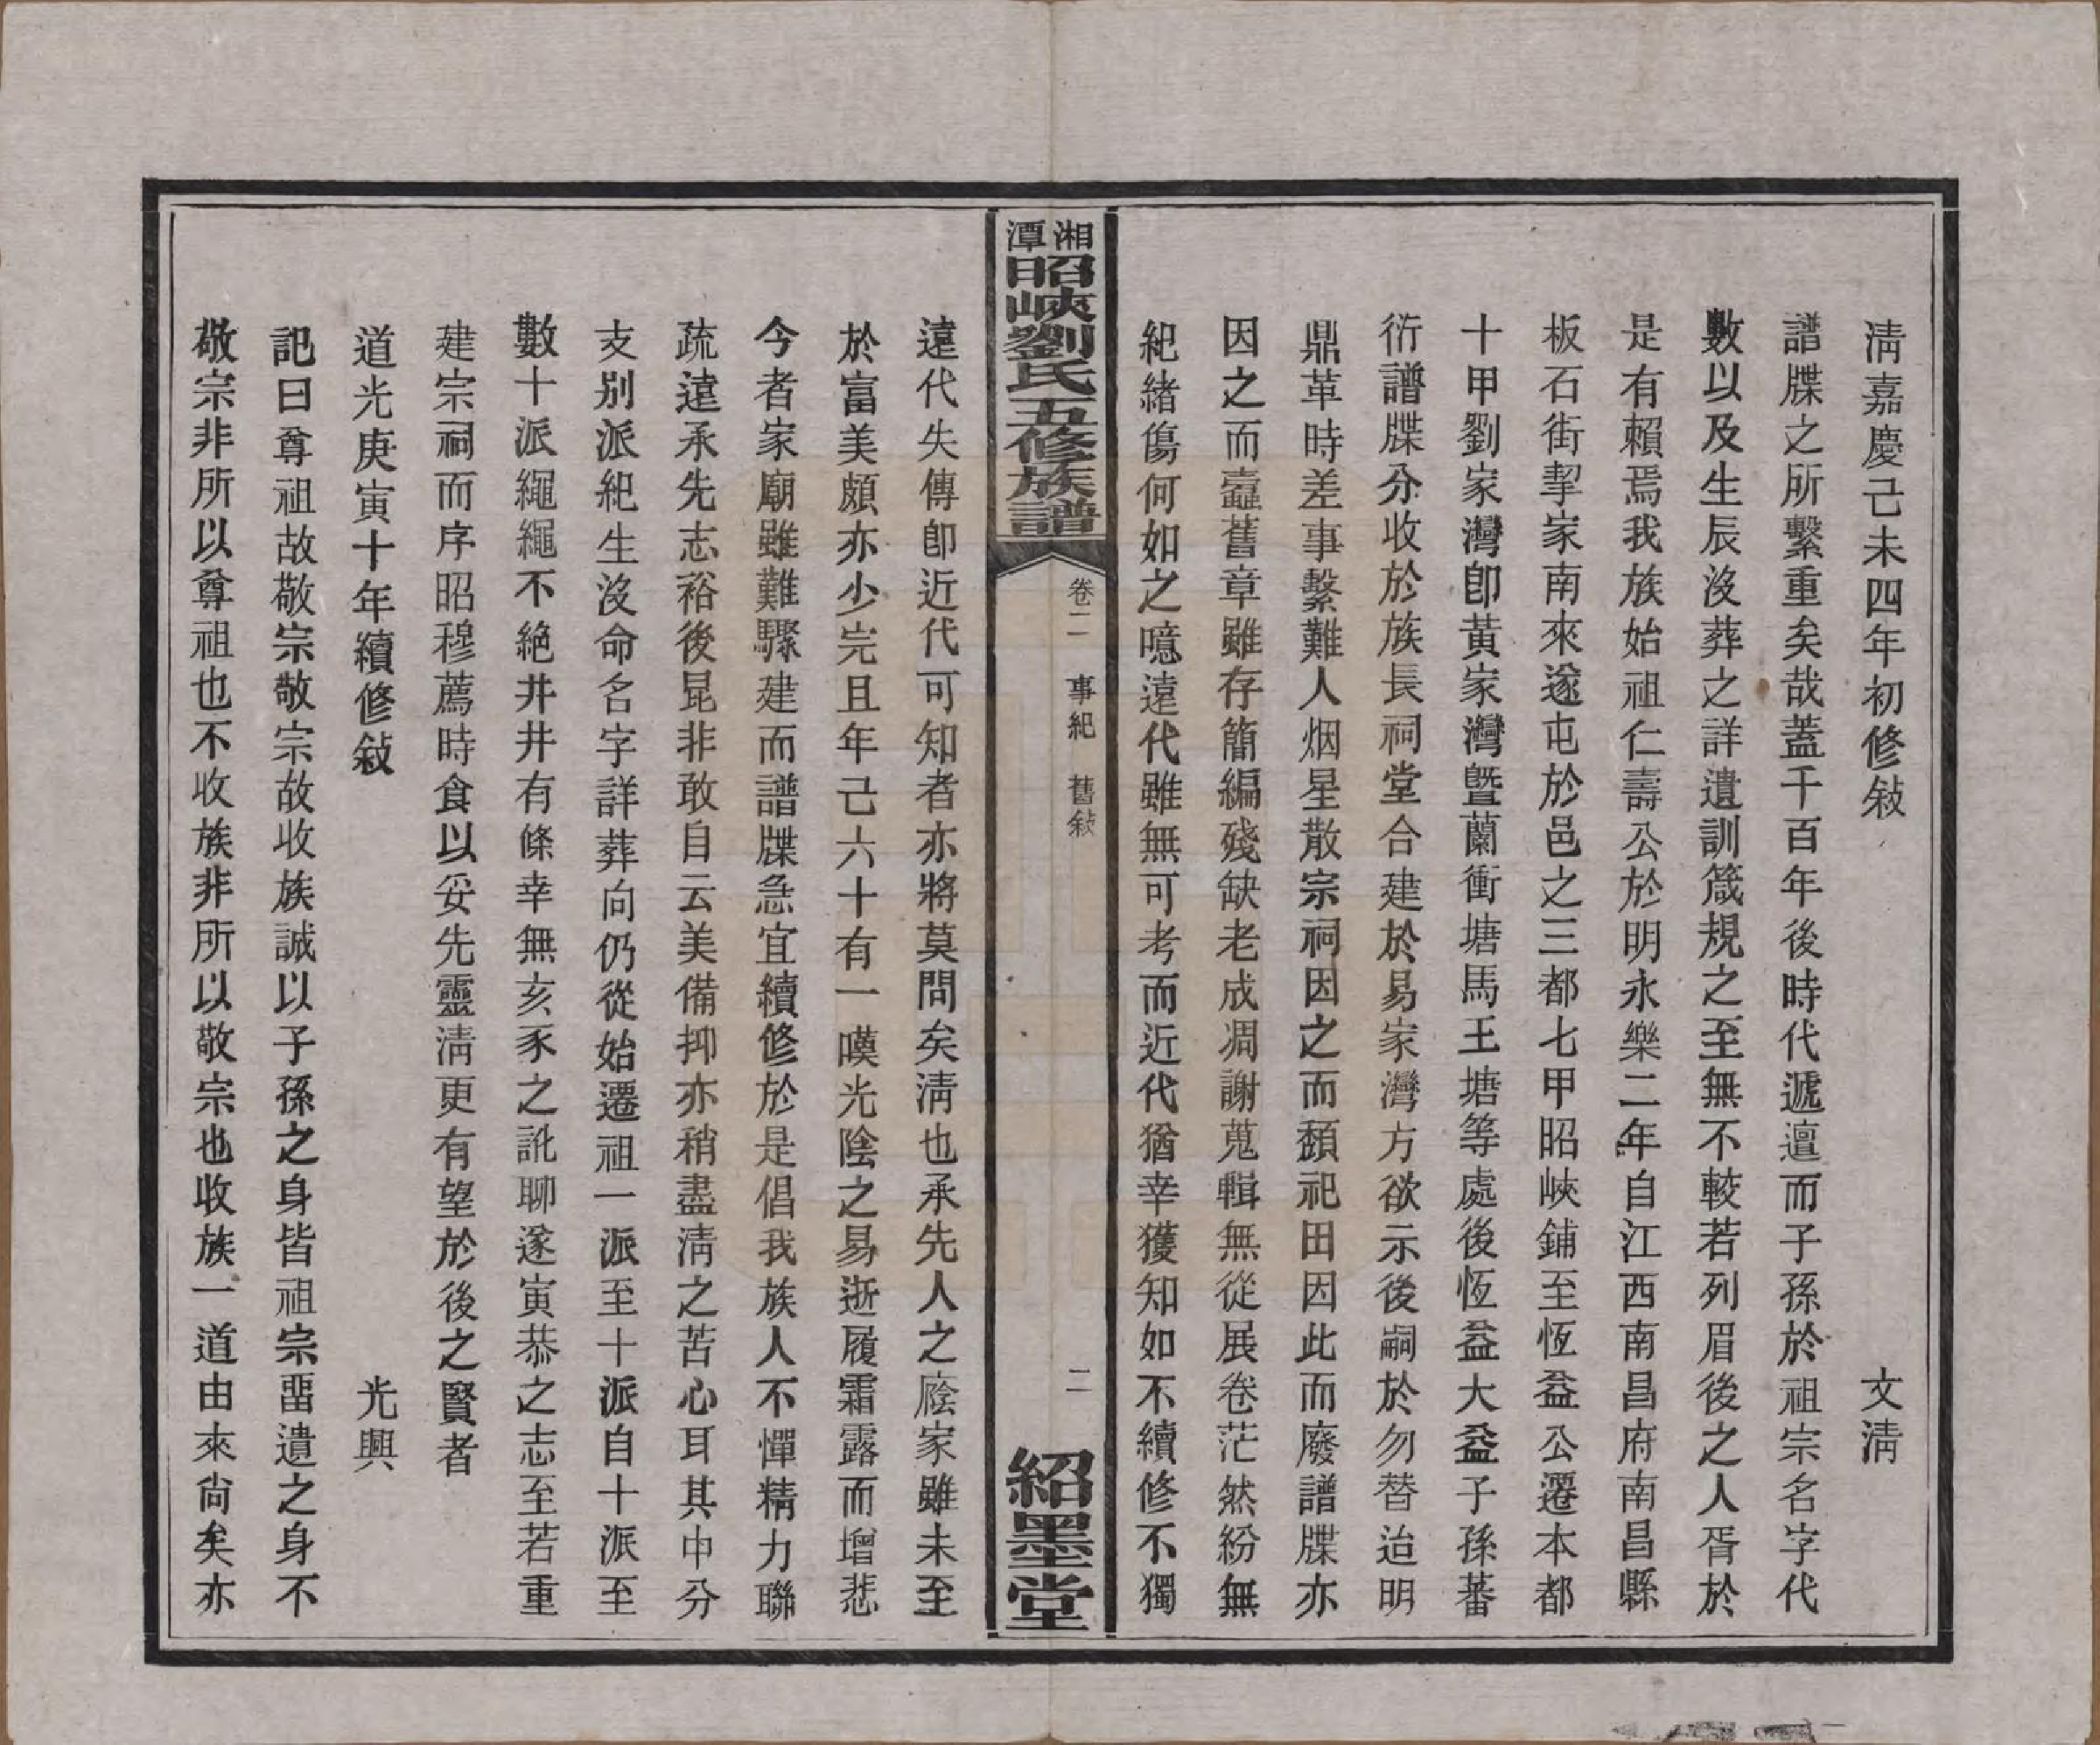 清嘉慶己未四年初修敍　文清
譜牒之所繫重矣哉蓋千百年後時代遞邅而子孫於祖宗名字代
數以及生辰沒葬之詳遺訓箴規之至無不較若列眉後之人胥於
是有賴焉我族始祖仁壽公於明永樂二年自江西南昌府南昌縣
板石街挈家南來遂屯於邑之三都七甲昭峽鋪至恆益公遷本都
十甲劉家灣卽黃家灣曁蘭衝塘馬王塘等處後恆益大益子孫蕃
衍譜牒分收於族長祠堂合建於易家灣方欲示後嗣於勿替迨明
鼎革時差事繫難人烟星散宗祠因之而頹祀田因此而廢譜牒亦
因之而蠹舊章雖存簡編殘缺老成凋謝蒐輯無從展卷茫然紛無
紀緒傷何如之噫遠代雖無可考而近代猶幸獲知如不續修不獨
湘潭昭峽劉氏五修族譜　卷二　事紀　舊敍　二　紹墨堂
遠代失傳卽近代可知者亦將莫問矣清也承先人之廕家雖未至
於富美頗亦少完且年己六十有一嘆光陰之易逝履霜露而增悲
今者家廟雖難驟建而譜牒急宜續修於是倡我族人不憚精力聯
疏遠承先志裕後昆非敢自云美備抑亦稍盡清之苦心耳其中分
支别派紀生沒命名字詳葬向仍從始遷祖一派至十派自十派至
數十派繩繩不絶井井有條幸無亥豕之訛聊遂寅恭之志至若重
建宗祠而序昭穆薦時食以妥先靈清更有望於後之賢者
道光庚寅十年續修敍　光興
記曰尊祖故敬宗敬宗故收族誠以子孫之身皆祖宗畱遺之身不
敬宗非所以尊祖也不收族非所以敬宗也收族一道由來尚矣亦